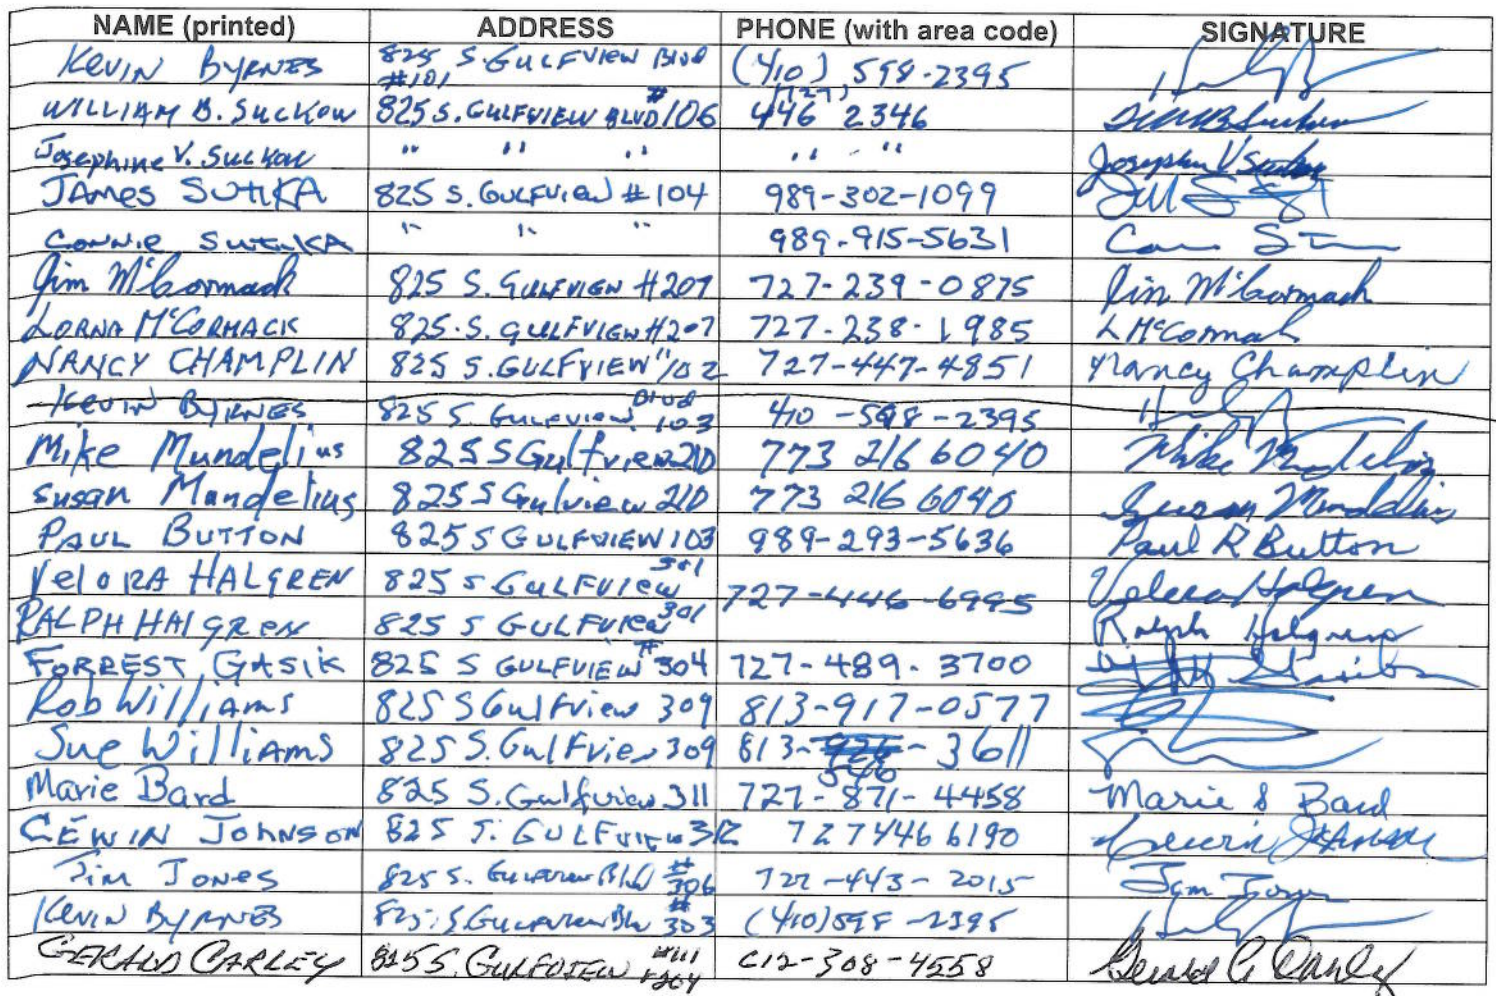 NAME (printed) ADDRESS PHONE (with area code) SIGNATURE
KEVIN BYRNES 825 S. GULFVIEW Blvd #101 (410) 598-2395
WILLIAM B. SUCKOW 825 S. GULFVIEW BLVD #106 (727) 446 2346
Josephine V. SUCKOW " " " " " Josephine V Suckow
JAMES SUTIKA 825 S. GULFVIEW #104 989-302-1099
CONNIE SUTIKA " " " 989-915-5631
Jim McCormack 825 S. GULFVIEW #207 727-239-0875 Jim McCormack
LORNA McCORMACK 825.S. GULFVIEW #207 727-238-1985 L McCormack
NANCY CHAMPLIN 825 S. GULFVIEW #102 727-447-4851 Nancy Champlin
KEVIN BYRNES 825 S. Gulfview Blvd 103 410-598-2395
Mike Mundelius 825 S Gulfview 210 773 216 6040 Mike Mundelius
Susan Mundelius 825 S Gulview 210 773 216 6040 Susan Mundelius
PAUL BUTTON 825 S GULFVIEW 103 989-293-5636 Paul R Button
VELORA HALGREN 825 S. GULFVIEW 301 727-446-6995 Velora Halgren
RALPH HALGREN 825 S GULFVIEW 301 Ralph Halgren
FORREST GASIK 825 S GULFVIEW #304 727-489-3700
Rob Williams 825 S Gulfview 309 813-917-0577
Sue Williams 825 S. Gulfview 309 813-546-3611
Marie Bard 825 S. Gulfview 311 727-871-4458 Marie S Bard
GEWIN JOHNSON 825 S. GULFVIEW 312 727 446 6190 Gewin Johnson
Jim Jones 825 S. Gulfview Blvd #306 727-443-2015
KEVIN BYRNES 825 S. Gulfview Blv #303 (410) 598-2395
GERALD CARLEY 825 S. GULFVIEW #111 #204 612-308-4558